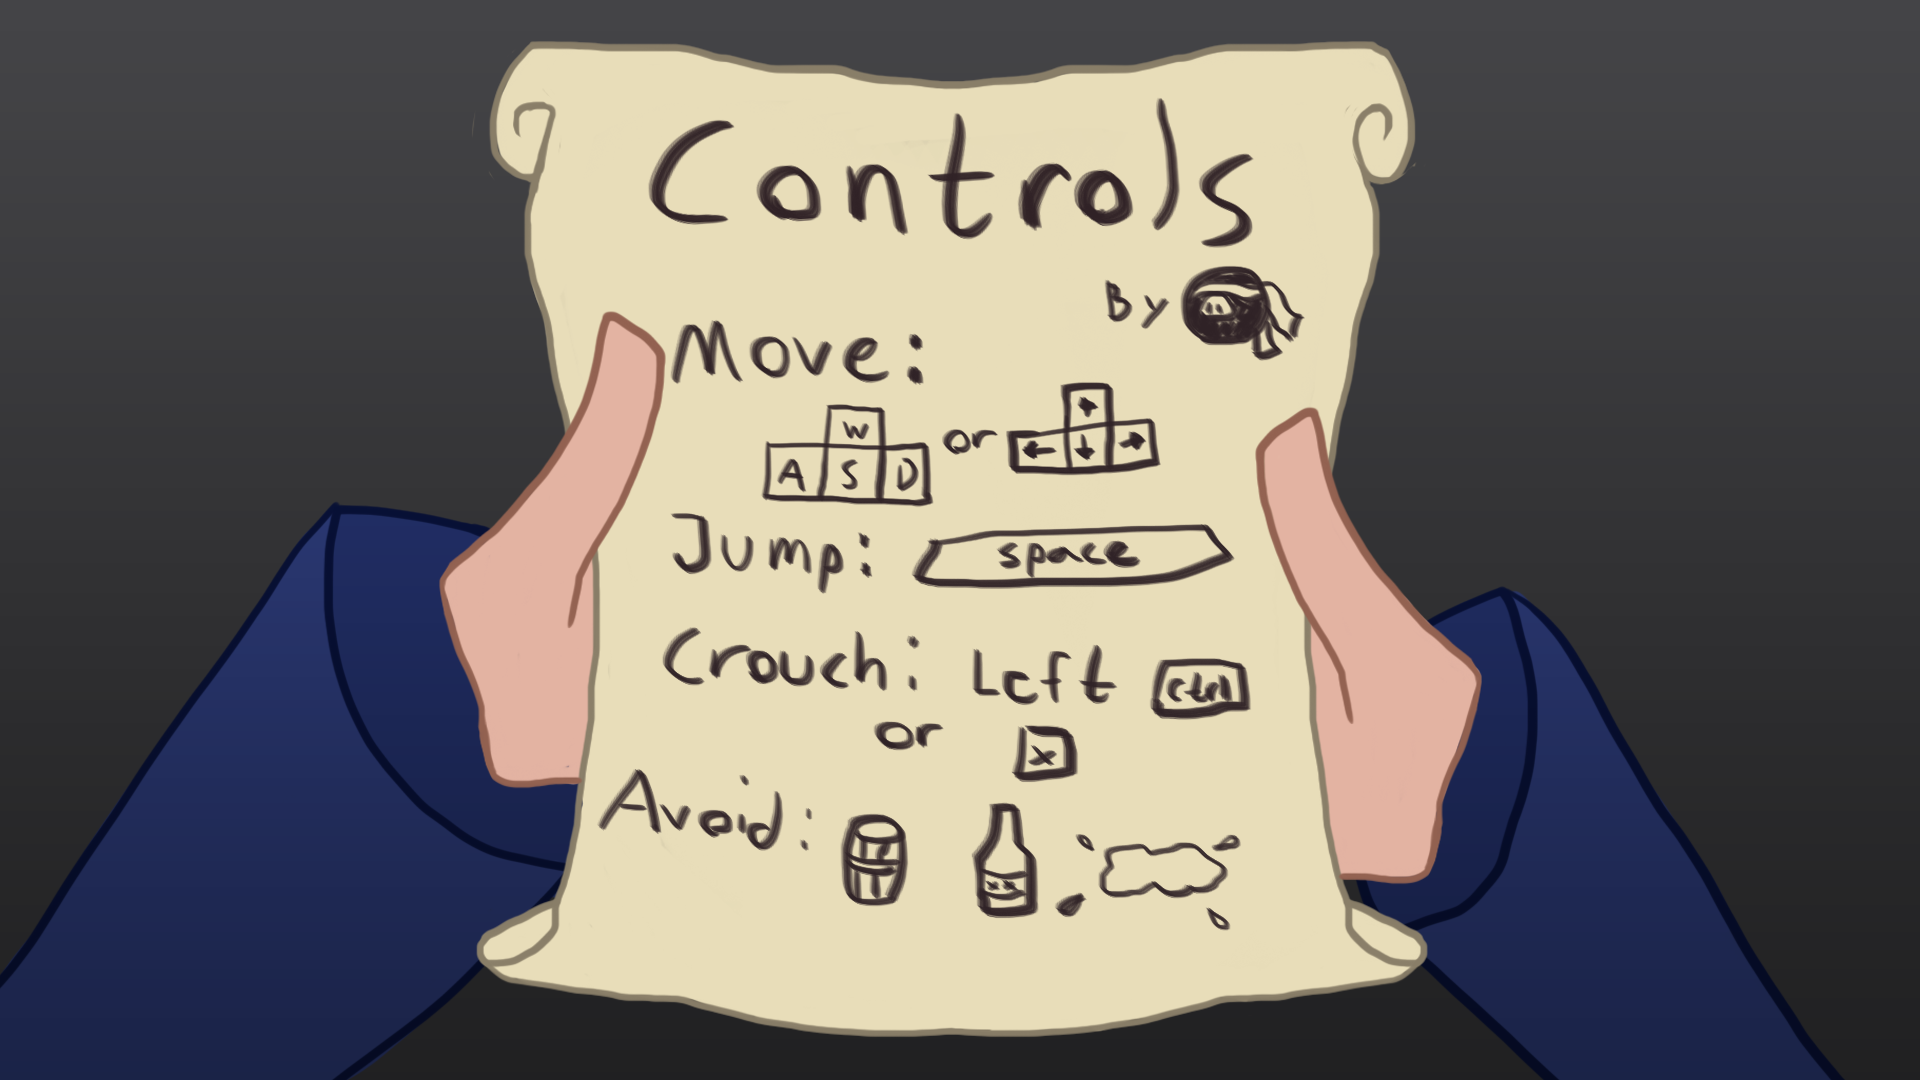 Controls
By
Move:
W
A S D or ← ↑ ↓ →
Jump: space
Crouch: Left ctrl
or x
Avoid:
xx